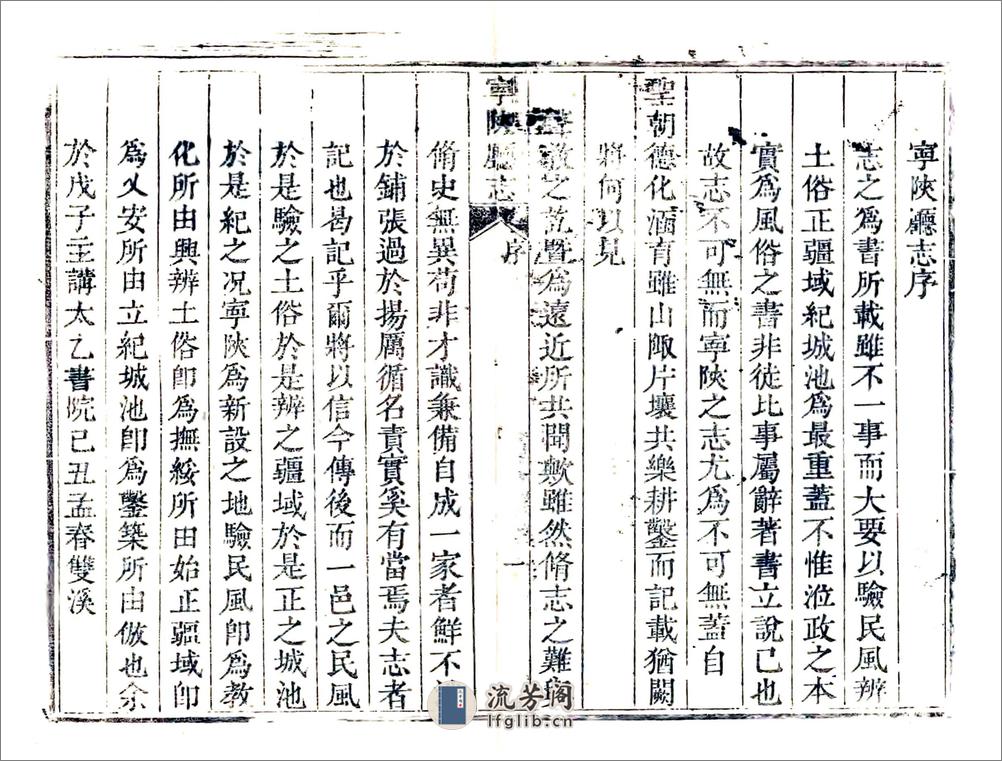 寧陝廳志序
志之為書所載雖不一事而大要以驗民風辨
土俗正疆域紀城池為最重蓋不惟涖政之本
實為風俗之書非徒比事屬辭著書立說已也
故志不可無而寧陝之志尤為不可無蓋自
聖朝德化涵育雖山陬片壤共樂耕鑿而記載猶闕
將何以見
聲教之訖暨為遠近所共聞歟雖然脩志之難
寧陝廳志
序
一
脩史無異苟非才識兼備自成一家者鮮不
於鋪張過於揚厲循名責實奚有當焉夫志者
記也曷記乎爾將以信今傳後而一邑之民風
於是驗之土俗於是辨之疆域於是正之城池
於是紀之况寧陝為新設之地驗民風卽為教
化所由興辨土俗卽為撫綏所由始正疆域卽
為乂安所由立紀城池卽為鑿築所由倣也余
於戊子主講太乙書院已丑孟春雙溪
流芳閣
lfglib.cn